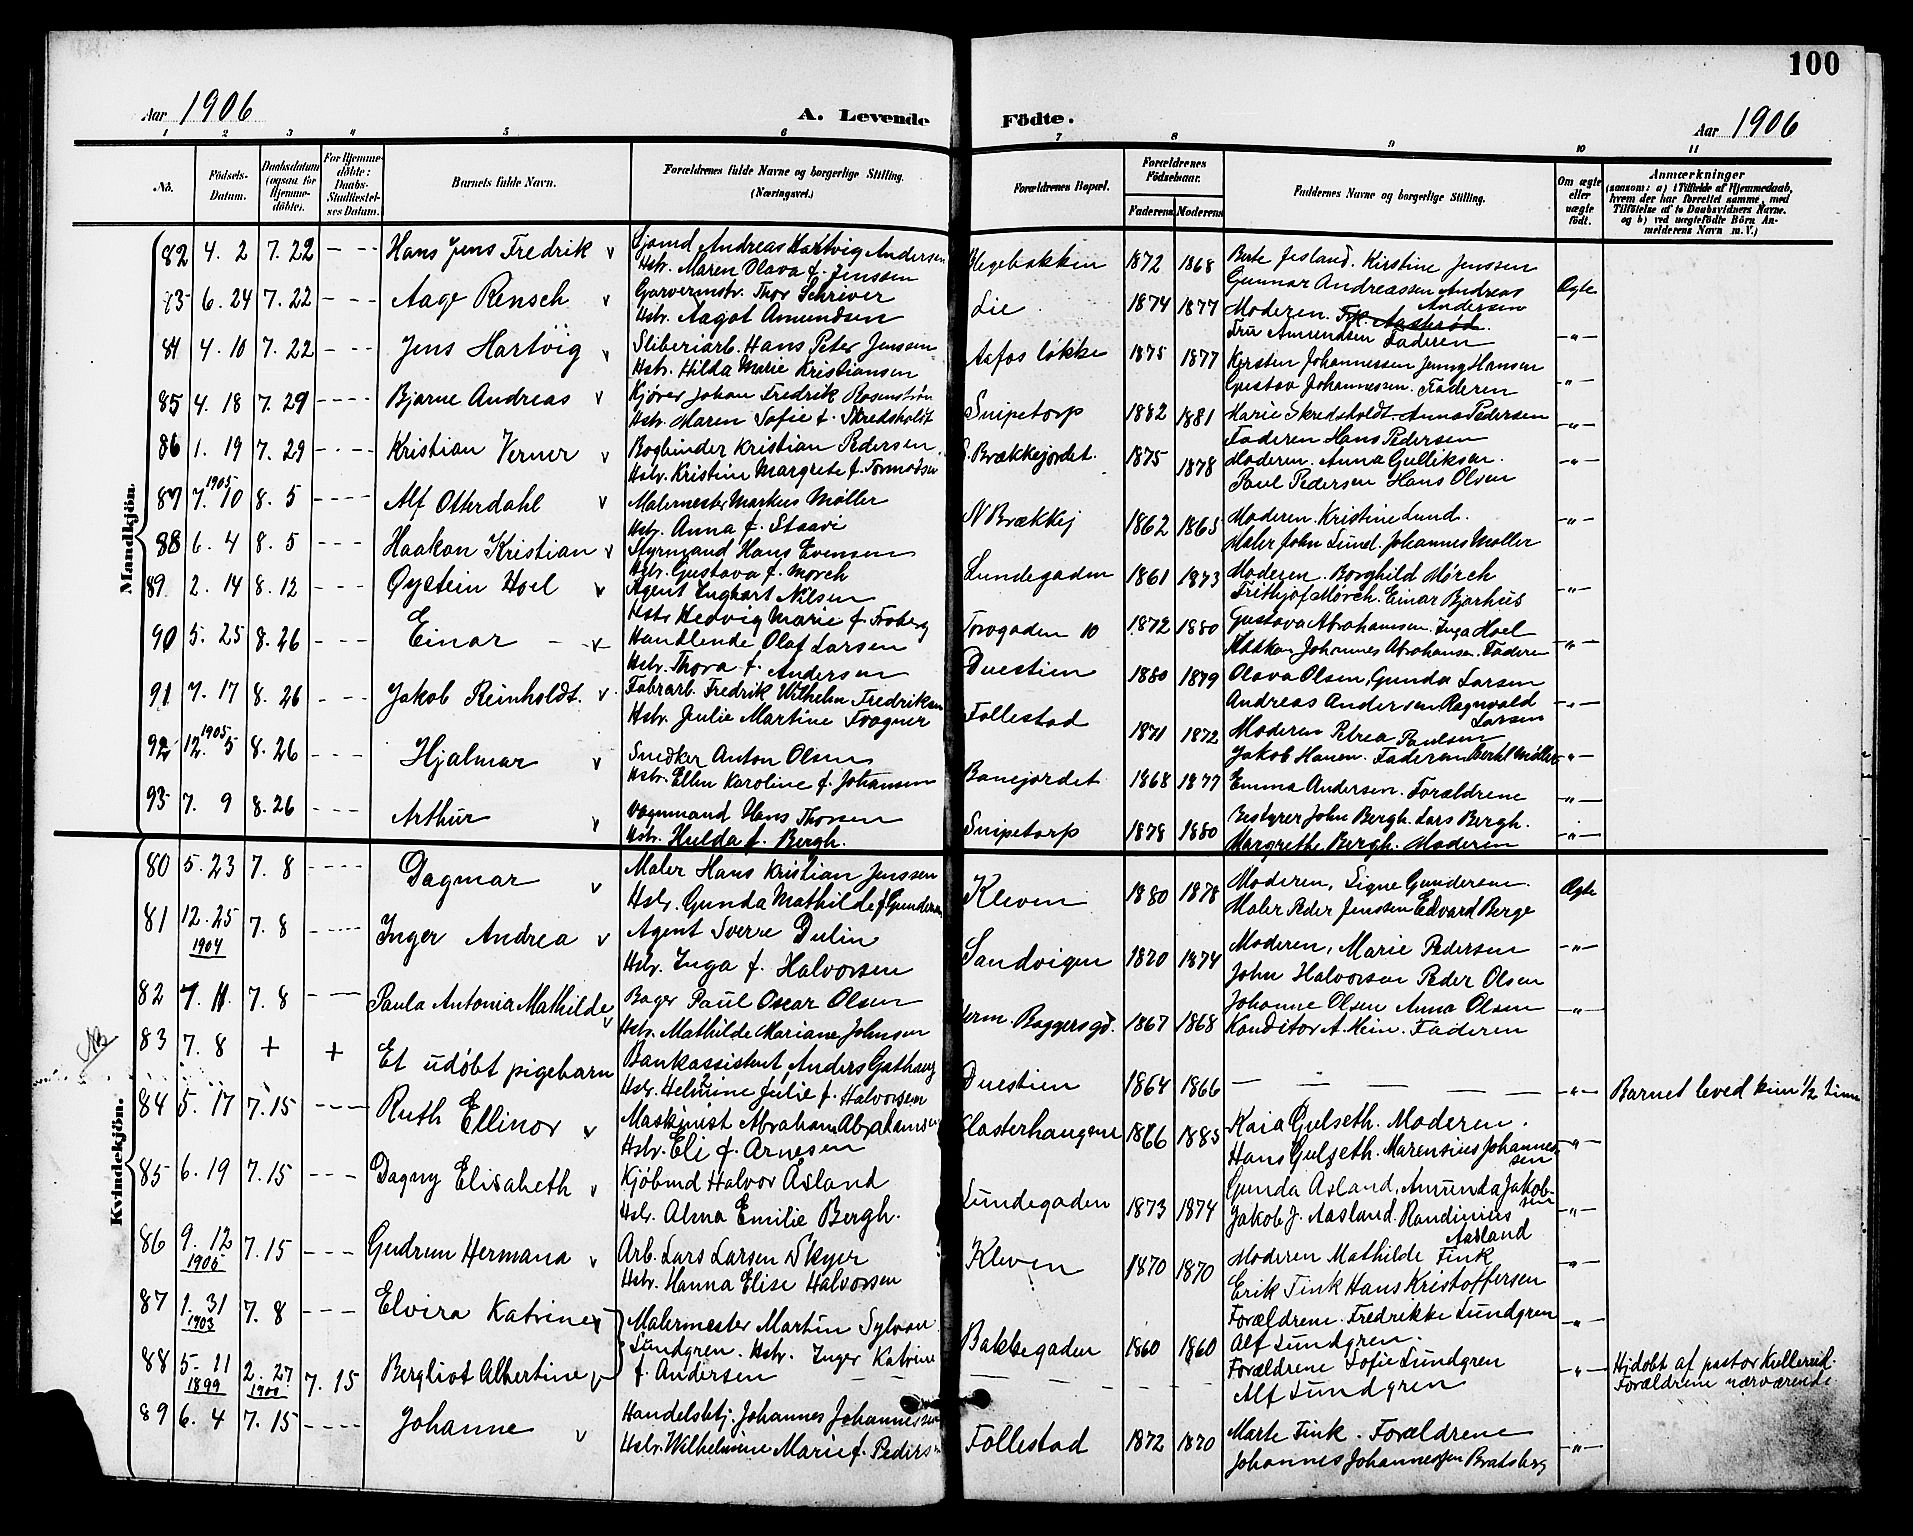 100
Aar 1906
A. Levende Födte.
Aar 1906
1 2 3 4 5 6 7 8 9 10 11
No.
Födsels-Datum.
Daabsdatum (ogsaa for Hjemme-döbte).
For Hjemme-döbte: Daabs-Stadfæstel-ses Datum.
Barnets fulde Navn.
Forældrenes fulde Navne og borgerlige Stilling.
(Næringsvei.)
Forældrenes Bopæl.
Forældrenes Födselsaar.
Faderens Moderens
Faddernes Navne og borgerlige Stilling.
Om ægte eller uægte födt.
Anmærkninger
(saasom: a) i Tilfælde af Hjemmedaab, hvem der har forrettet samme, med Tilföielse af to Daabsvidners Navne. og b) ved uægtefödte Börn Anmelderens Navn m. V.)
Mandkjön.
82 4. 2 7. 22 - - - Hans Jens Fredrik v Sjømd Andreas Hartvig Andersen Blegebakken 1872 1868 Berte Jesland. Kirstine Jenssen Ægte
Hstr. Maren Olava f. Jenssen Gunnar Andreassen Andreas Andersen
83 6. 24 7. 22 - - - Aage Rensch v Garvermstr. Thor Schriver Lie 1874 1877 Moderen. Frk. Aasterød. -"-
Hstr. Aagot Amundsen Fru Amundsen Faderen
84 4. 10 7. 22 - - - Jens Hartvig v Sliberiarb. Hans Peter Jenssen Aafos løkke 1875 1877 Kirsten Johannessen Jenny Hansen -"-
Hstr. Hilda Marie Kristiansen Gustav Johannessen. Faderen
85 4. 18 7. 29 - - - Bjarne Andreas v Kjører Johan Fredrik Rosenstrøn Snipetorp 1882 1881 Marie Skredsholdt. Anna Pedersen -"-
Hstr. Maren Sofie f. Skredsholdt Faderen Hans Pedersen
86 1. 19 7. 29 - - - Kristian Verner v Bogbinder Kristian Pedersen. S. Brækkejordet. 1875 1878 Moderen. Anna Gulliksen. -"-
Hstr. Kristine Margrete f. Tormodsen Paul Pedersen Hans Olsen
87 7. 1905 10 8. 5 - - - Alf Otterdahl v Malermester Markus Møller N Brækkej 1862 1865 Moderen. Kristine Lund. -"-
Hstr. Anna f. Staavi Maler John Lund. Johannes Møller
88 6. 4 8. 5 - - - Haakon Kristian v Styrmand Hans Evensen Lundegaden 1861 1873 Moderen. Borghild Mørch -"-
Hstr. Gustava f. Mørch Frithjof Mørch. Einar Bjørhus
89 2. 14 8. 12 - - - Øystein Hoel v Agent Inghart Nilsen Torvgaden 10 1872 1880 Gustava Abrahamsen. Inga Hoel -"-
Hstr Hedvig Marie f. Froberg Haakon Johannes Abrahamsen. Faderen
90 5. 25 8. 26 - - - Einar v Handlende Olaf Larsen Duestien 1880 1879 Olava Olsen, Gunda Larsen -"-
Hstr. Thora f. Andersen Andreas Andersen Ragnvald Larsen
91 7. 17 8. 26 - - - Jakob Reinholdt. v Fabrarb. Fredrik Wilhelm Fredriksen Follestad 1871 1872 Moderen Petrea Paulsen -"-
Hstr. Julie Martine Fragner Jakob Hansen. Faderen Bertel Møller
92 12. 1905 5 8. 26 - - - Hjalmar v Snedker Anton Olsen Banejordet 1868 1877 Emma Andersen. Forældrene -"-
Hstr. Ellen Karoline f. Johansen
93 7. 9 8. 26 - - - Arthur v Vognmand Hans Thorsen Snipetorp 1878 1880 Bestyrer John Bergh. Lars Bergh. -"-
Hstr. Hulda f. Bergh. Margrethe Bergh. Moderen
Kvindekjön.
80 5. 23 7. 8 - - - Dagmar v Maler Hans Kristian Jenssen Kleven 1880 1878 Moderen, Signe Gundersen. Ægte
Hstr. Gunda Mathilde f. Gundersen Maler Peder Jenssen Edvard Berge
81 12. 25 1904 7. 8 - - - Inger Andrea v Agent Sverre Dulin Sandvigen 1870 1874 Moderen, Marie Pedersen -"-
Hstr. Inga f. Halvorsen John Halvorsen Peder Olsen
82 7. 11. 7. 8 - - - Paula Antonia Mathilde v Bager Paul Oscar Olsen Herm. Baggersgd. 1867 1868 Johanne Olsen Anna Olsen -"-
Hstr. Mathilde Mariane Johnsen Konditor A. Hein. Faderen
83 7. 8 + + Et udøbt pigebarn Bankassistent, Anders Gathaug Duestien 1864 1866 - - - - -"- Barnet leved kun 1/2 time
Hstr. Helmine Julie f. Halvorsen
84 5. 17 7. 15 - - - Ruth Ellinor v Maskinist Abraham Abrahamsen Klosterhaugene 1866 1885 Kaia Gulseth. Moderen. -"-
Hstr. Eli f. Arnesen Hans Gulseth. Marensius Johannessen
85 6. 19 7. 15 - - - Dagny Elisabeth v Kjøbmd Halvor Asland Lundegaden 1873 1874 Gunda Asland, Amunda Jakobsen -"-
Hstr. Alma Emilie Bergh. Jakob J. Aasland. Randinius Aasland
86 9. 12 1905 7. 15 - - - Gudrun Hermana v Arb. Lars Larsen Skyer Kleven 1870 1870 Moderen Mathilde Fink -"-
Hstr. Hanna Elise Halvorsen Erik Fink Hans Kristoffersen
87 1. 31 1903 7. 8 - - - Elvira Katrine v Malermester Martin Sylvan Bakkegaden 1860 1860 Forældrene. Fredrikke Lundgren -"-
Lundgren. Hstr. Inger Katrine Alf Lundgren.
88 5. 11 1899 2. 27 1900 7. 15 Bergliot Albertine v f. Andersen Forældrene Sofie Lundgren -"- Hjdøbt af pastor Kullerud.
Alf Lundgren Forældrene nærværende.
89 6. 4 7. 15 - - - Johanne v Handelsbtj. Johannes Johannessen Follestad 1872 1870 Marte Fink. Forældrene -"-
Hstr. Wilhelmine Marie f. Peders Johannes Johannessen Bratsberg